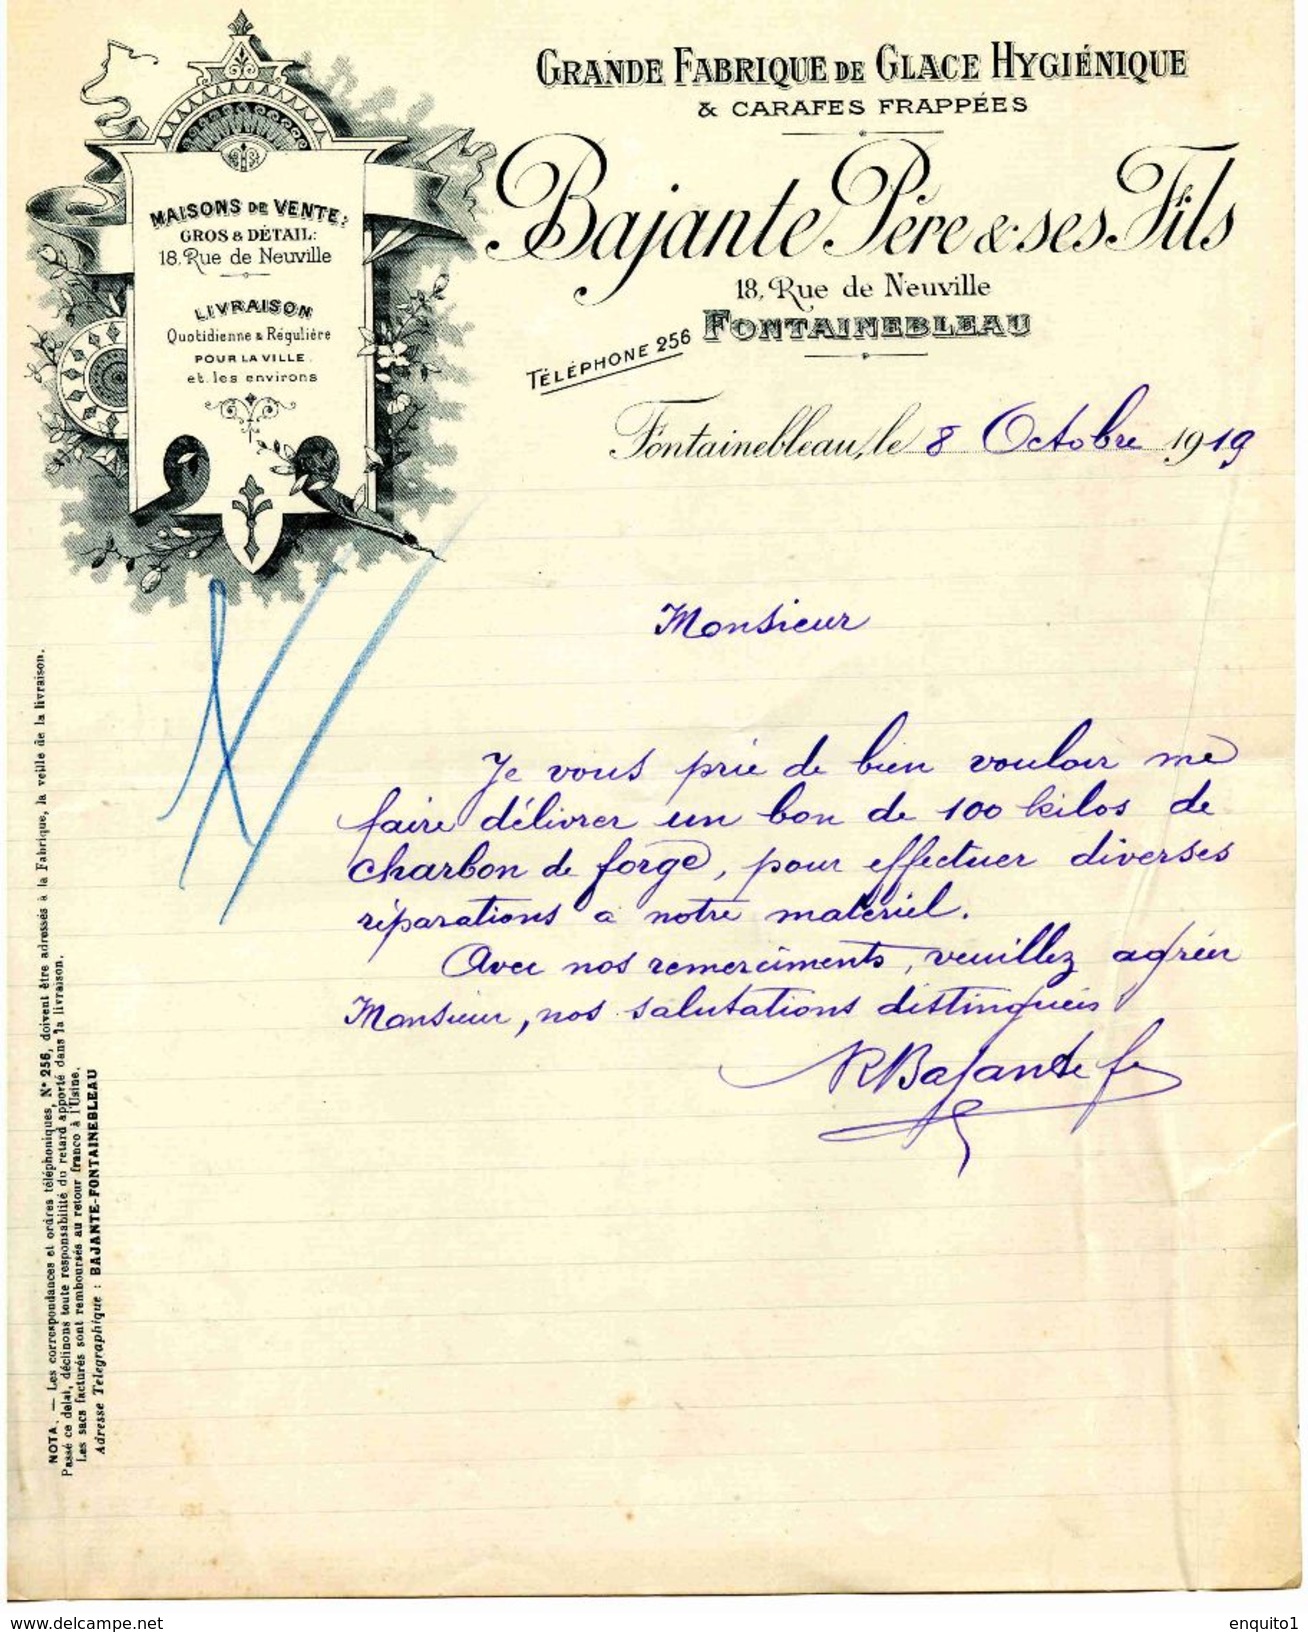 GRANDE FABRIQUE DE GLACE HYGIÉNIQUE
& CARAFES FRAPPÉES
Bajante Père & ses Fils
18, Rue de Neuville
FONTAINEBLEAU
TÉLÉPHONE 256
MAISONS DE VENTE:
GROS & DÉTAIL:
18, Rue de Neuville
LIVRAISON
Quotidienne & Régulière
POUR LA VILLE
et les environs
Fontainebleau, le 8 Octobre 1919
Monsieur
Je vous prie de bien vouloir me
faire délivrer un bon de 100 kilos de
charbon de forge, pour effectuer diverses
réparations a notre matériel.
Avec nos remerciments, veuillez agréer
Monsieur, nos salutations distinguées
RBajante
NOTA. — Les correspondances et ordres téléphoniques, N° 256, doivent être adressés à la Fabrique, la veille de la livraison.
Passé ce délai, déclinons toute responsabilité du retard apporté dans la livraison.
Les sacs facturés sont remboursés au retour franco à l'Usine.
Adresse Télégraphique : BAJANTE-FONTAINEBLEAU
www.delcampe.net
enquito1